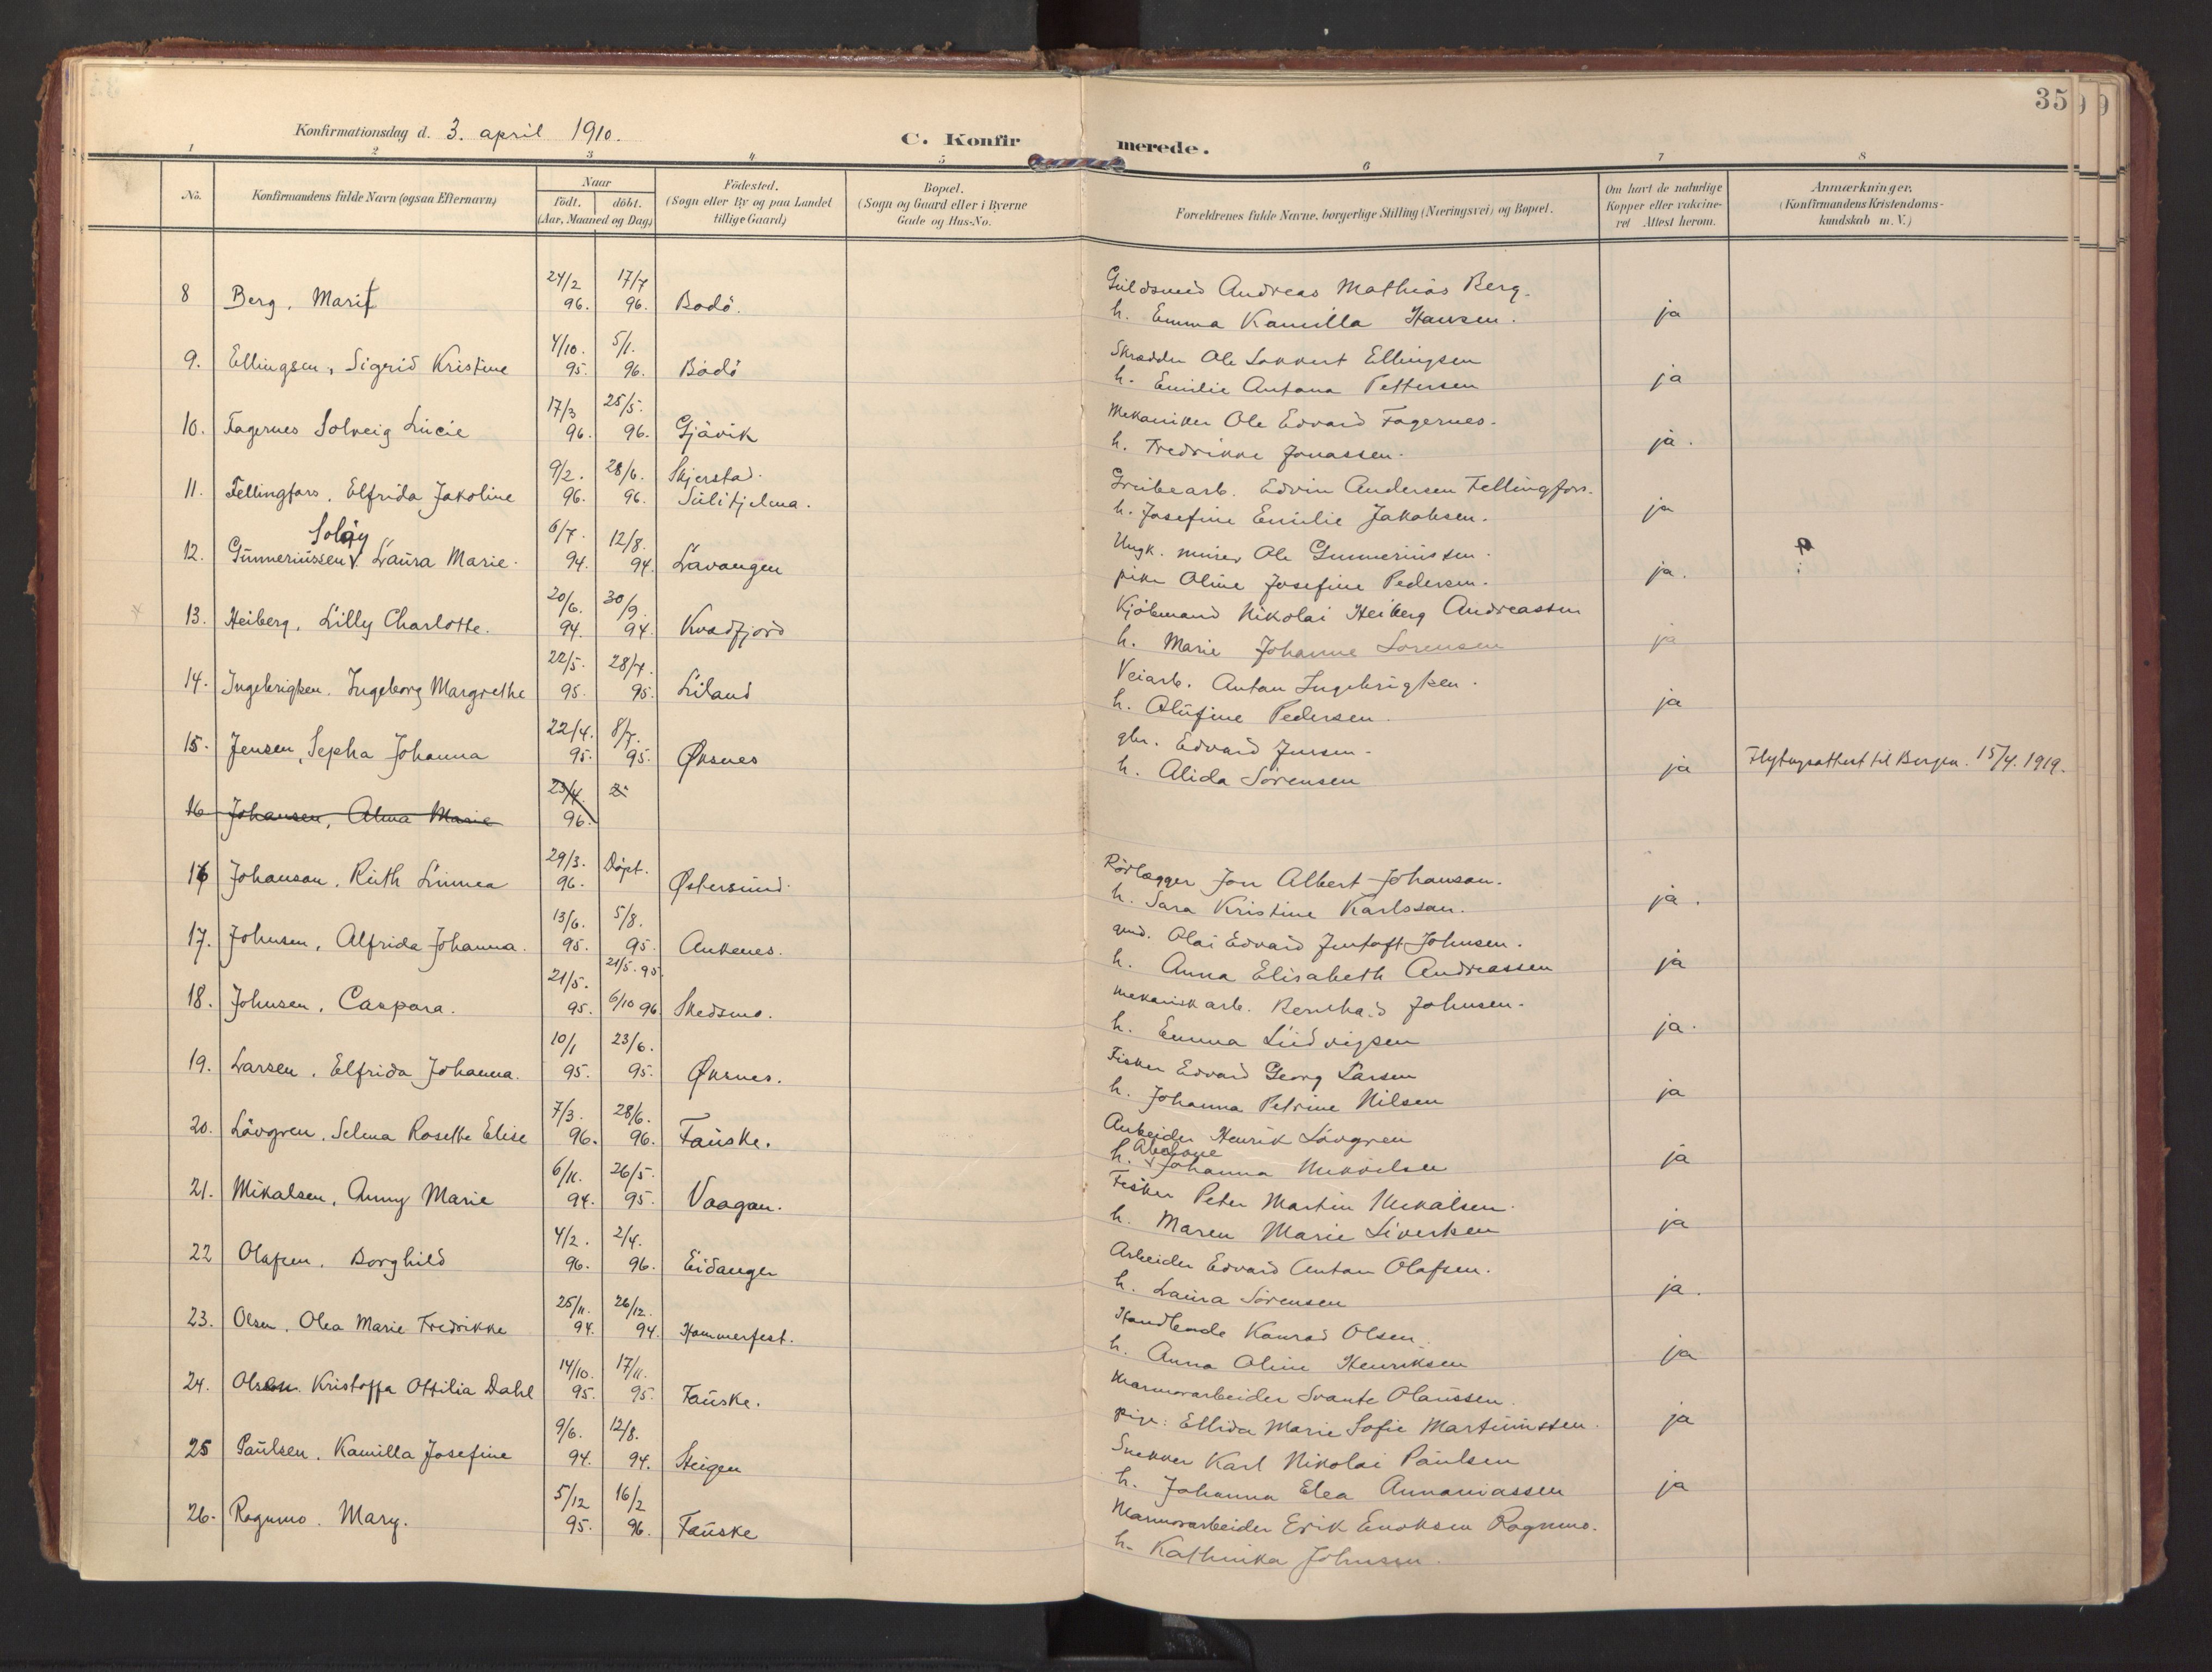 35
Konfirmationsdag d. 3. april 1910.
C. Konfirmerede.
1 2 3 4 5 6 7 8
No.
Konfirmandens fulde Navn (ogsaa Efternavn)
Naar
födt. döbt.
(Aar, Maaned og Dag)
Födested.
(Sogn eller By og paa Landet
tillige Gaard)
Bopæl.
(Sogn og Gaard eller i Byerne
Gade og Hus-No.
Forældrenes fulde Navne, borgerlige Stilling (Næringsvei) og Bopæl.
Om havt de naturlige
Kopper eller vakcine-
ret Attest herom.
Anmærkninger.
(Konfirmandens Kristendoms-
kundskab m. V.)
8 Berg, Marit 24/2 96. 17/7 96. Bodö. Guldsmed Andreas Mathias Berg. ja
h. Emma Kamilla Hansen.
9. Ellingsen, Sigrid Kristine 4/10. 95. 5/1. 96. Bodö Skrædder Ole Ellingsen ja
h. Emilie Antona Pettersen
10. Fagernes Solveig Lucie 17/3 96. 25/5. 96. Gjövik Mekaniker Ole Edvard Fagernes. ja.
h. Fredrikke Jonassen.
11. Fellingfors, Elfrida Jakoline 9/2. 96. 28/6. 96. Skjerstad. Sulitjelma. Grubearb. Edvin Andersen Fellingfors. ja
h. Josefine Emilie Jakobsen.
Solöy
12. Gunneriussen V Laura Marie. 6/7. 94. 12/8. 94. Lavangen Ungk. murer Ole Gunneriussen. ja.
pike Oline Josefine Pedersen.
13. Heiberg, Lilly Charlotte. 20/6. 94. 30/9. 94. Kvædfjord Kjöbmand Nikolai Heiberg Andreassen ja
h. Marie Johanne Sorensen
14. Ingebrigtsen. Ingeborg Margrethe 22/5. 95. 28/7. 95. Liland Veiarb. Anton Ingebrigtsen. ja
h. Olufine Pedersen.
15. Jensen, Sepha Johanna 22/4. 95. 8/7. 95. Øksnes gbr. Edvard Jensen. ja Flytngsattest til Bergen. 15/4. 1919.
h. Alida Sörensen
16 Johansen, Alma Marie 23/4. 96.
16 Johanson, Ruth Linnea 29/3. 96. Döpt. Østersund. Rörlægger Jon Albert Johanson. ja.
h. Sara Kristine Karlsson.
17. Johnsen, Alfrida Johanna. 13/6. 95. 5/8. 95. Ankenes. Olai Edvard Johnsen. ja
h. Anna Elisabeth Andreassen
18. Johnsen, Caspara. 21/5. 95. 21/5. 95 6/10 96 Skedsmo. Mekanisk arb. Bernhard Johnsen. ja.
h. Emma Ludvigsen
19. Larsen, Elfrida Johanna. 10/1 95. 23/6. 95. Øksnes. Fisker Edvard Georg Larsen ja
h. Johanna Petrine Nilsen
20. Lövgren, Selma Rosette Elise 7/3. 96. 28/6. 96. Fauske. Arbeider Henrik Lövgren ja
h. Johanna Mikkelsen
21. Mikalsen, Anny Marie 6/11. 94. 26/5. 95. Vaagan. Fisker Peter Martin Mikalsen. ja
h. Maren Marie Sivertsen
22 Olafsen, Borghild 4/2. 96. 2/4. 96. Eidanger Arbeider Edvard Anton Olafsen. ja.
h. Laura Sörensen
23. Olsen, Olea Marie Fredrikke 25/11. 94. 26/12. 94. Hammerfest. Handlende Konrad Olsen. ja
h. Anna Oline Henriksen
24. Olsson. Kristoffa Ottilia Dahl 14/10. 95. 17/11. 95. Fauske. Marmorarbeider Svante Olaussen. ja
pige: Ellida Marie Sofie Martinussen.
25 Paulsen, Kamilla Josefine 9/6. 94. 12/8. 94. Steigen Snekker Karl Nikolai Paulsen ja
h. Johanna Elea Annaniassen
26. Rognmo. Mary. 5/12 95. 16/2 96. Fauske Marmorarbeider Erik Enoksen Rognmo.
h. Kathinka Johnsen.